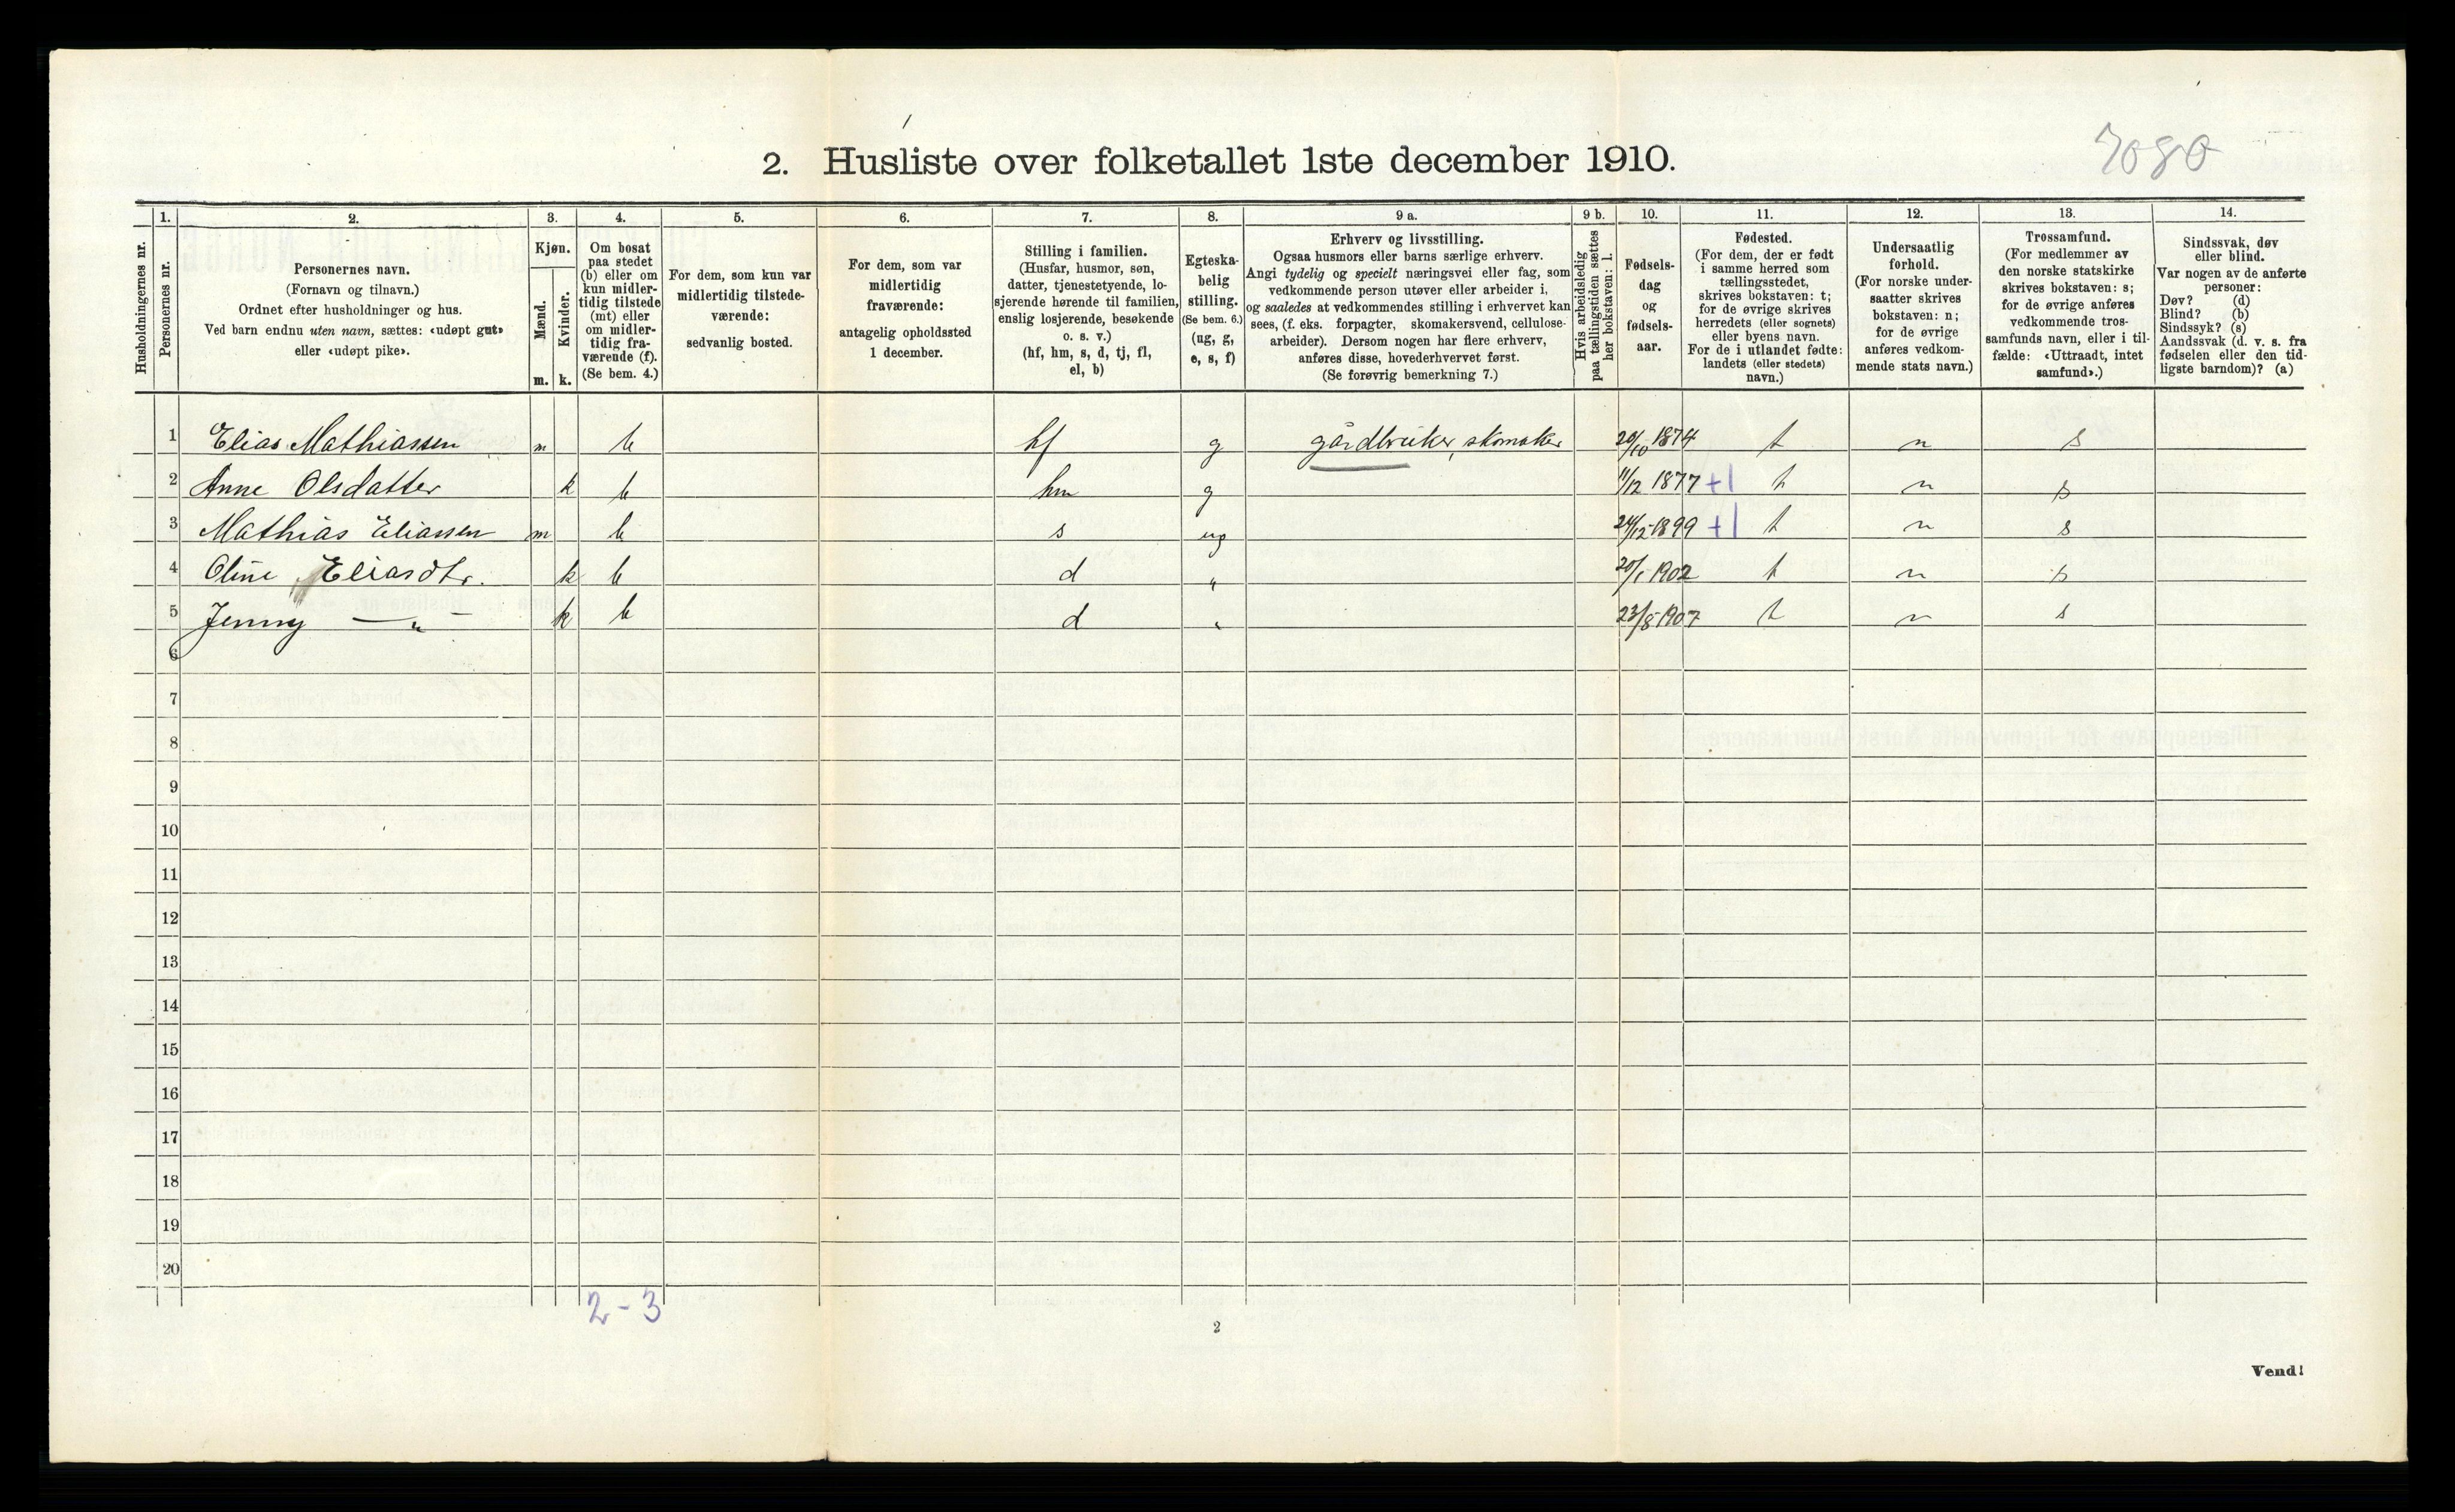 2. Husliste over folketallet 1ste december 1910.
Husholdningernes nr.
1. Personernes nr.
2. Personernes navn. (Fornavn og tilnavn.) Ordnet efter husholdninger og hus. Ved barn endnu uten navn, sættes: «udøpt gut» eller «udøpt pike».
3. Kjøn. Mænd. m. Kvinder. k.
4. Om bosat paa stedet (b) eller om kun midler-tidig tilstede (mt) eller om midler-tidig fra-værende (f). (Se bem. 4.)
5. For dem, som kun var midlertidig tilstede-værende: sedvanlig bosted.
6. For dem, som var midlertidig fraværende: antagelig opholdssted 1 december.
7. Stilling i familien. (Husfar, husmor, søn, datter, tjenestetyende, lo-sjerende hørende til familien, enslig losjerende, besøkende o. s. v.) (hf, hm, s, d, tj, fl, el, b)
8. Egteska-belig stilling. (Se bem. 6.) (ug, g, e, s, f)
9 a. Erhverv og livsstilling. Ogsaa husmors eller barns særlige erhverv. Angi tydelig og specielt næringsvei eller fag, som vedkommende person utøver eller arbeider i, og saaledes at vedkommendes stilling i erhvervet kan sees, (f. eks. forpagter, skomakersvend, cellulose-arbeider). Dersom nogen har flere erhverv, anføres disse, hovederhvervet først. (Se forøvrig bemerkning 7.)
9 b. Hvis arbeidsledig paa tællingstiden sættes her bokstaven: l.
10. Fødsels-dag og fødsels-aar.
11. Fødested. (For dem, der er født i samme herred som tællingsstedet, skrives bokstaven: t; for de øvrige skrives herredets (eller sognets) eller byens navn. For de i utlandet fødte: landets (eller stedets) navn.)
12. Undersaatlig forhold. (For norske under-saatter skrives bokstaven: n; for de øvrige anføres vedkom-mende stats navn.)
13. Trossamfund. (For medlemmer av den norske statskirke skrives bokstaven: s; for de øvrige anføres vedkommende tros-samfunds navn, eller i til-fælde: «Uttraadt, intet samfund».)
14. Sindssvak, døv eller blind. Var nogen av de anførte personer: Døv? (d) Blind? (b) Sindssyk? (s) Aandssvak (d. v. s. fra fødselen eller den tid-ligste barndom)? (a)
1 Elias Mathiassen m b hf g gårdbruker, skomaker 20/10 1874 t n s
2 Anne Olsdatter k b hm g 11/12 1877 +1 t n s
3 Mathias Eliassen m b s ug 24/12 1899 +1 t n s
4 Oline Eliasdtr. k b d " 20/1 1902 t n s
5 Jenny — " — k b d " 23/8 1907 t n s
6
7
8
9
10
11
12
13
14
15
16
17
18
19
20
2 - 3
2
Vend!